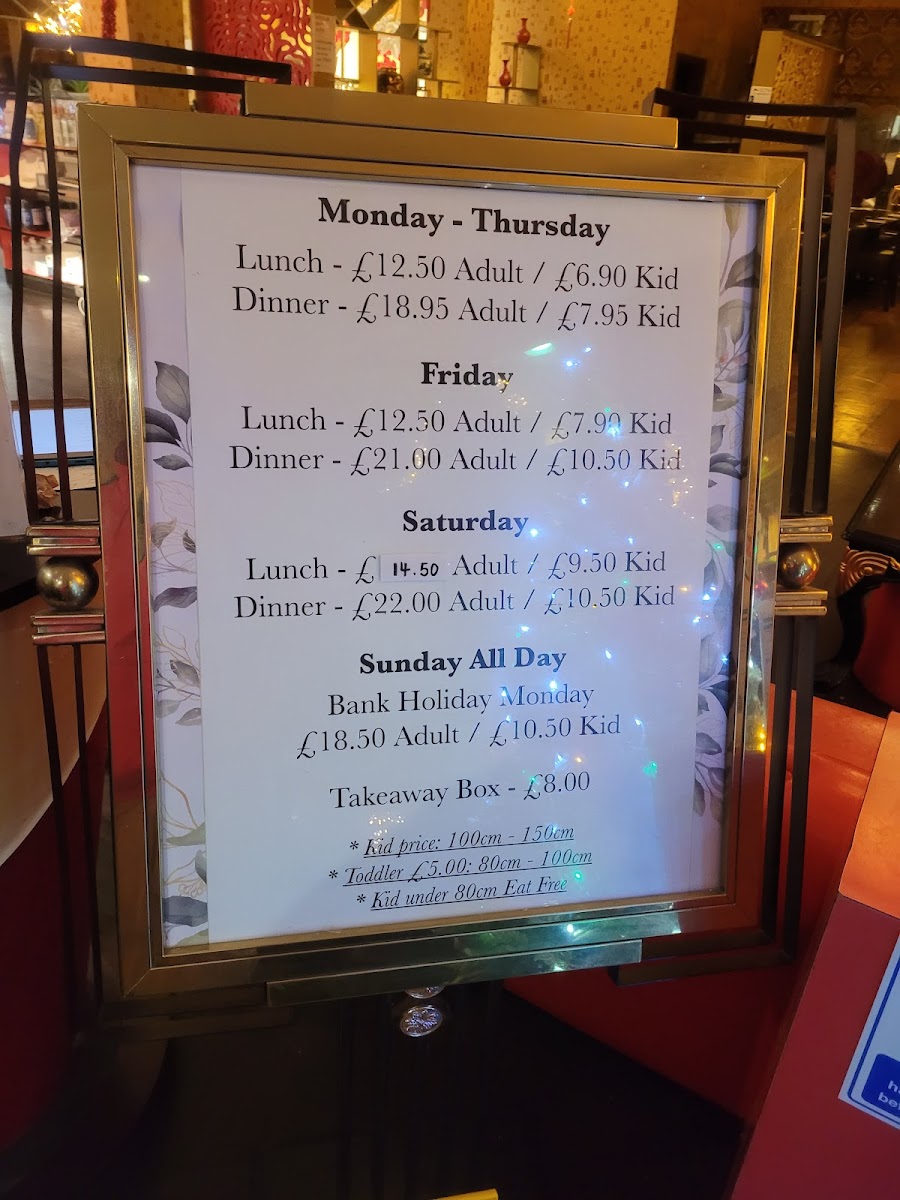 Monday - Thursday
Lunch - £12.50 Adult / £6.90 Kid
Dinner - £18.95 Adult / £7.95 Kid
Friday
Lunch - £12.50 Adult / £7.90 Kid
Dinner - £21.00 Adult / £10.50 Kid
Saturday
Lunch - £ 14.50 Adult / £9.50 Kid
Dinner - £22.00 Adult / £10.50 Kid
Sunday All Day
Bank Holiday Monday
£18.50 Adult / £10.50 Kid
Takeaway Box - £8.00
* Kid price: 100cm - 150cm
* Toddler £5.00: 80cm - 100cm
* Kid under 80cm Eat Free